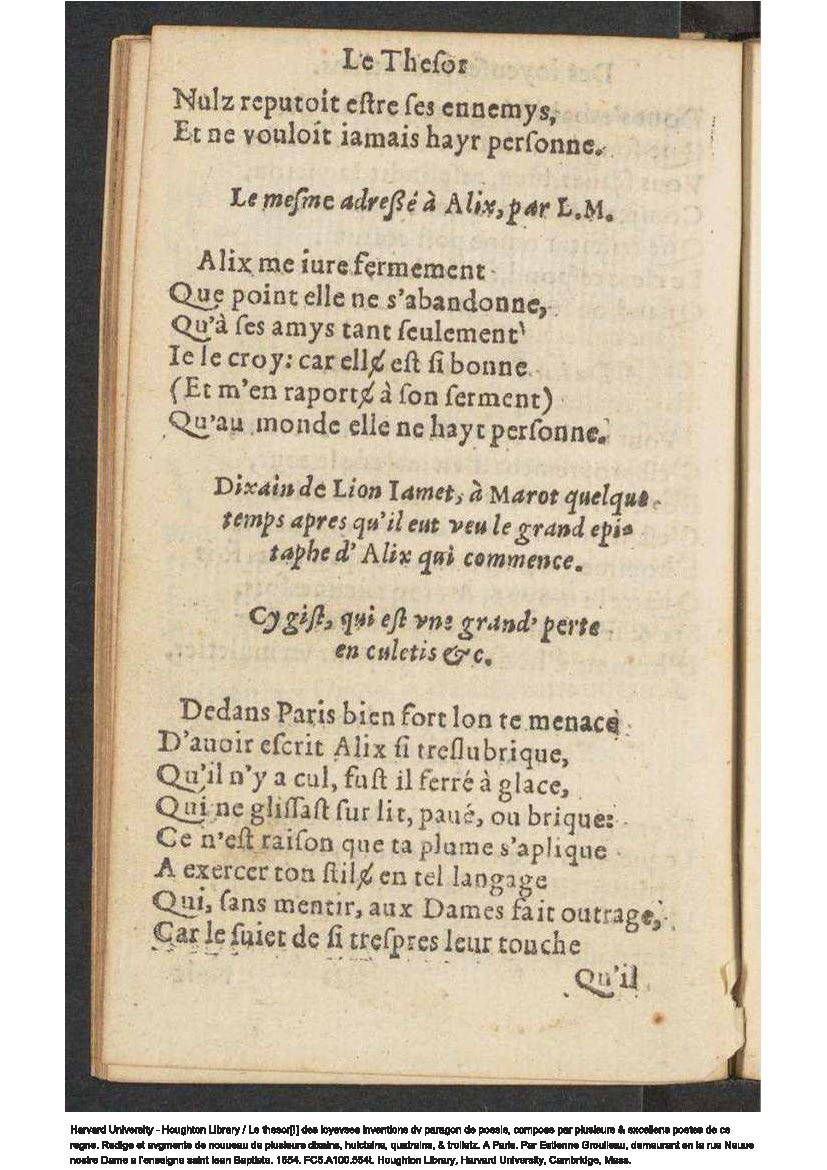 Le Theſor
Nulz reputoit eſtre ſes ennemys,
Et ne vouloit iamais hayr perſonne.
Le meſme adreßé à Alix, par L.M.
Alix me iure fermement
Que point elle ne s'abandonne,
Qu'à ſes amys tant ſeulement
Ie le croy: car ellɇ eſt ſi bonne
(Et m'en raportɇ à ſon ſerment)
Qu'au monde elle ne hayt perſonne.
Dixain de Lion Iamet, à Marot quelque
temps apres qu'il eut veu le grand epi-
taphe d'Alix qui commence.
Cy giſt, qui eſt vne grand' perte
en culetis &c.
Dedans Paris bien fort lon te menace
D'auoir eſcrit Alix ſi treſlubrique,
Qu'il n'y a cul, fuſt il ferré à glace,
Qui ne gliſſaſt ſur lit, paué, ou brique:
Ce n'eſt raiſon que ta plume s'aplique
A exercer ton ſtilɇ en tel langage
Qui, ſans mentir, aux Dames fait outrage,
Car le ſuiet de ſi treſpres leur touche
Qu'il
Harvard University - Houghton Library / Le thesor[i] des ioyevses inventions dv paragon de poesie, compose par plusieurs & excellens poetes de ce
regne. Redige et avgmente de nouueau de plusieurs dixains, huictains, quatrains, & triolletz. A Paris. Par Estienne Groulleau, demeurant en la rue Neuue
nostre Dame a l'enseigne saint Iean Baptiste. 1554. FC5.A100.554t. Houghton Library, Harvard University, Cambridge, Mass.